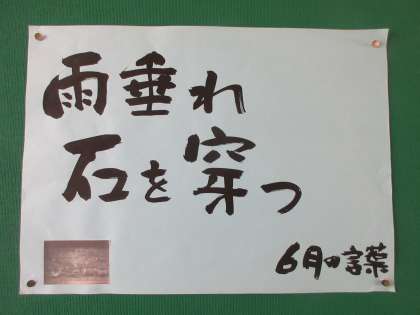 雨垂れ
石を穿つ
6月の言葉